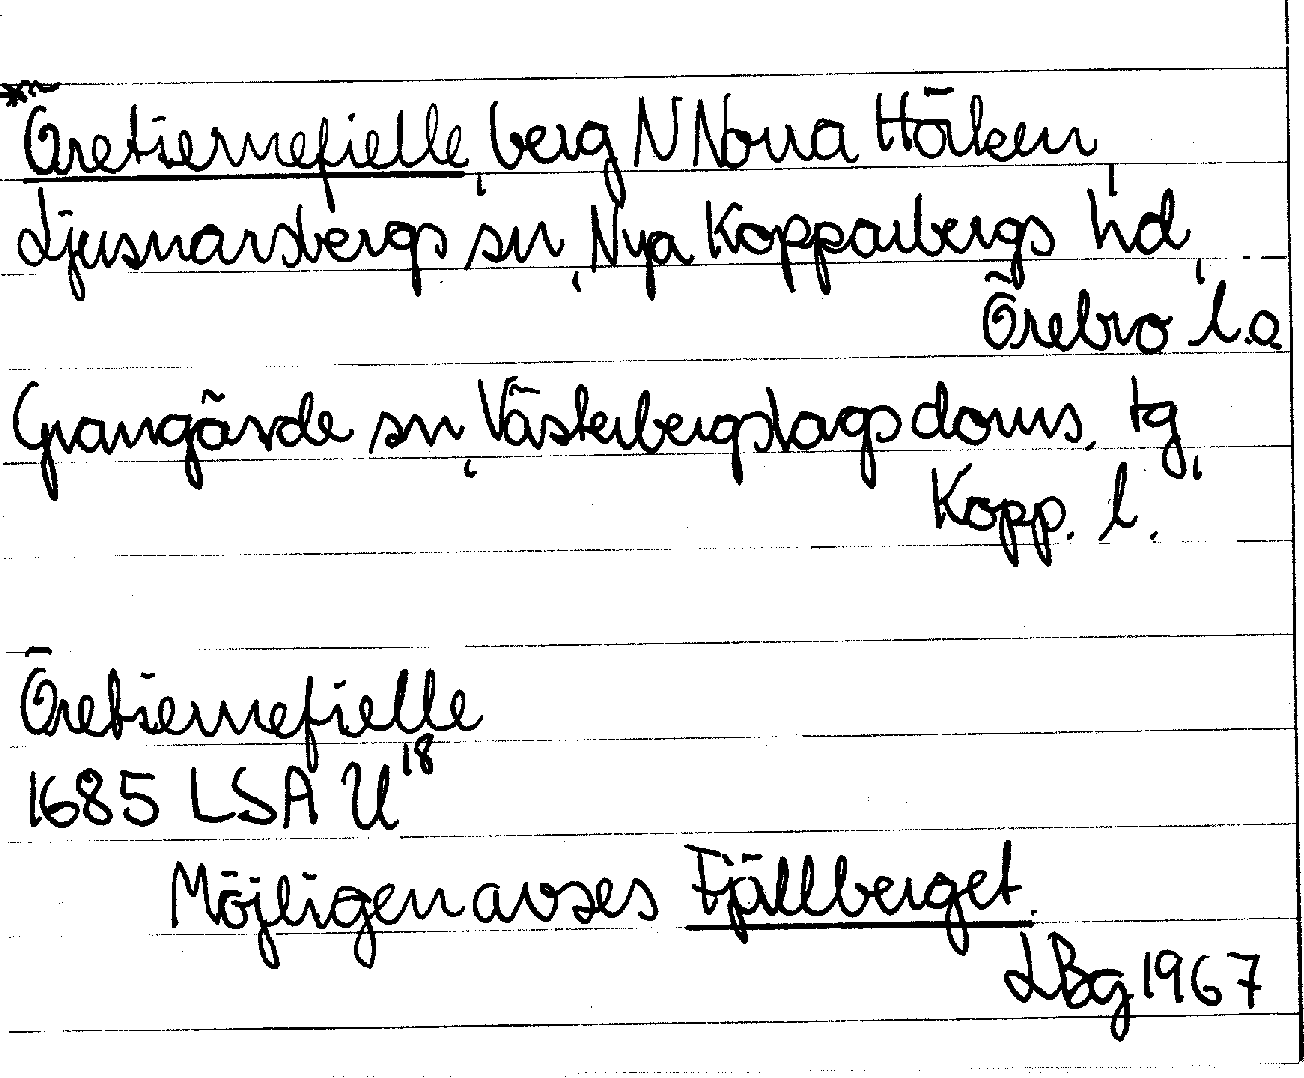 *Öretiernefielle, berg N Norra Hörken,
Ljusnarsbergs sn, Nya Kopparbergs hd,
Örebro l.o
Grangärde sn, Västerbergslags doms. tg,
Kopp. l.
Öretiernefielle
1685 LSA U18
Möjligen avses Fjällberget.
LBg 1967